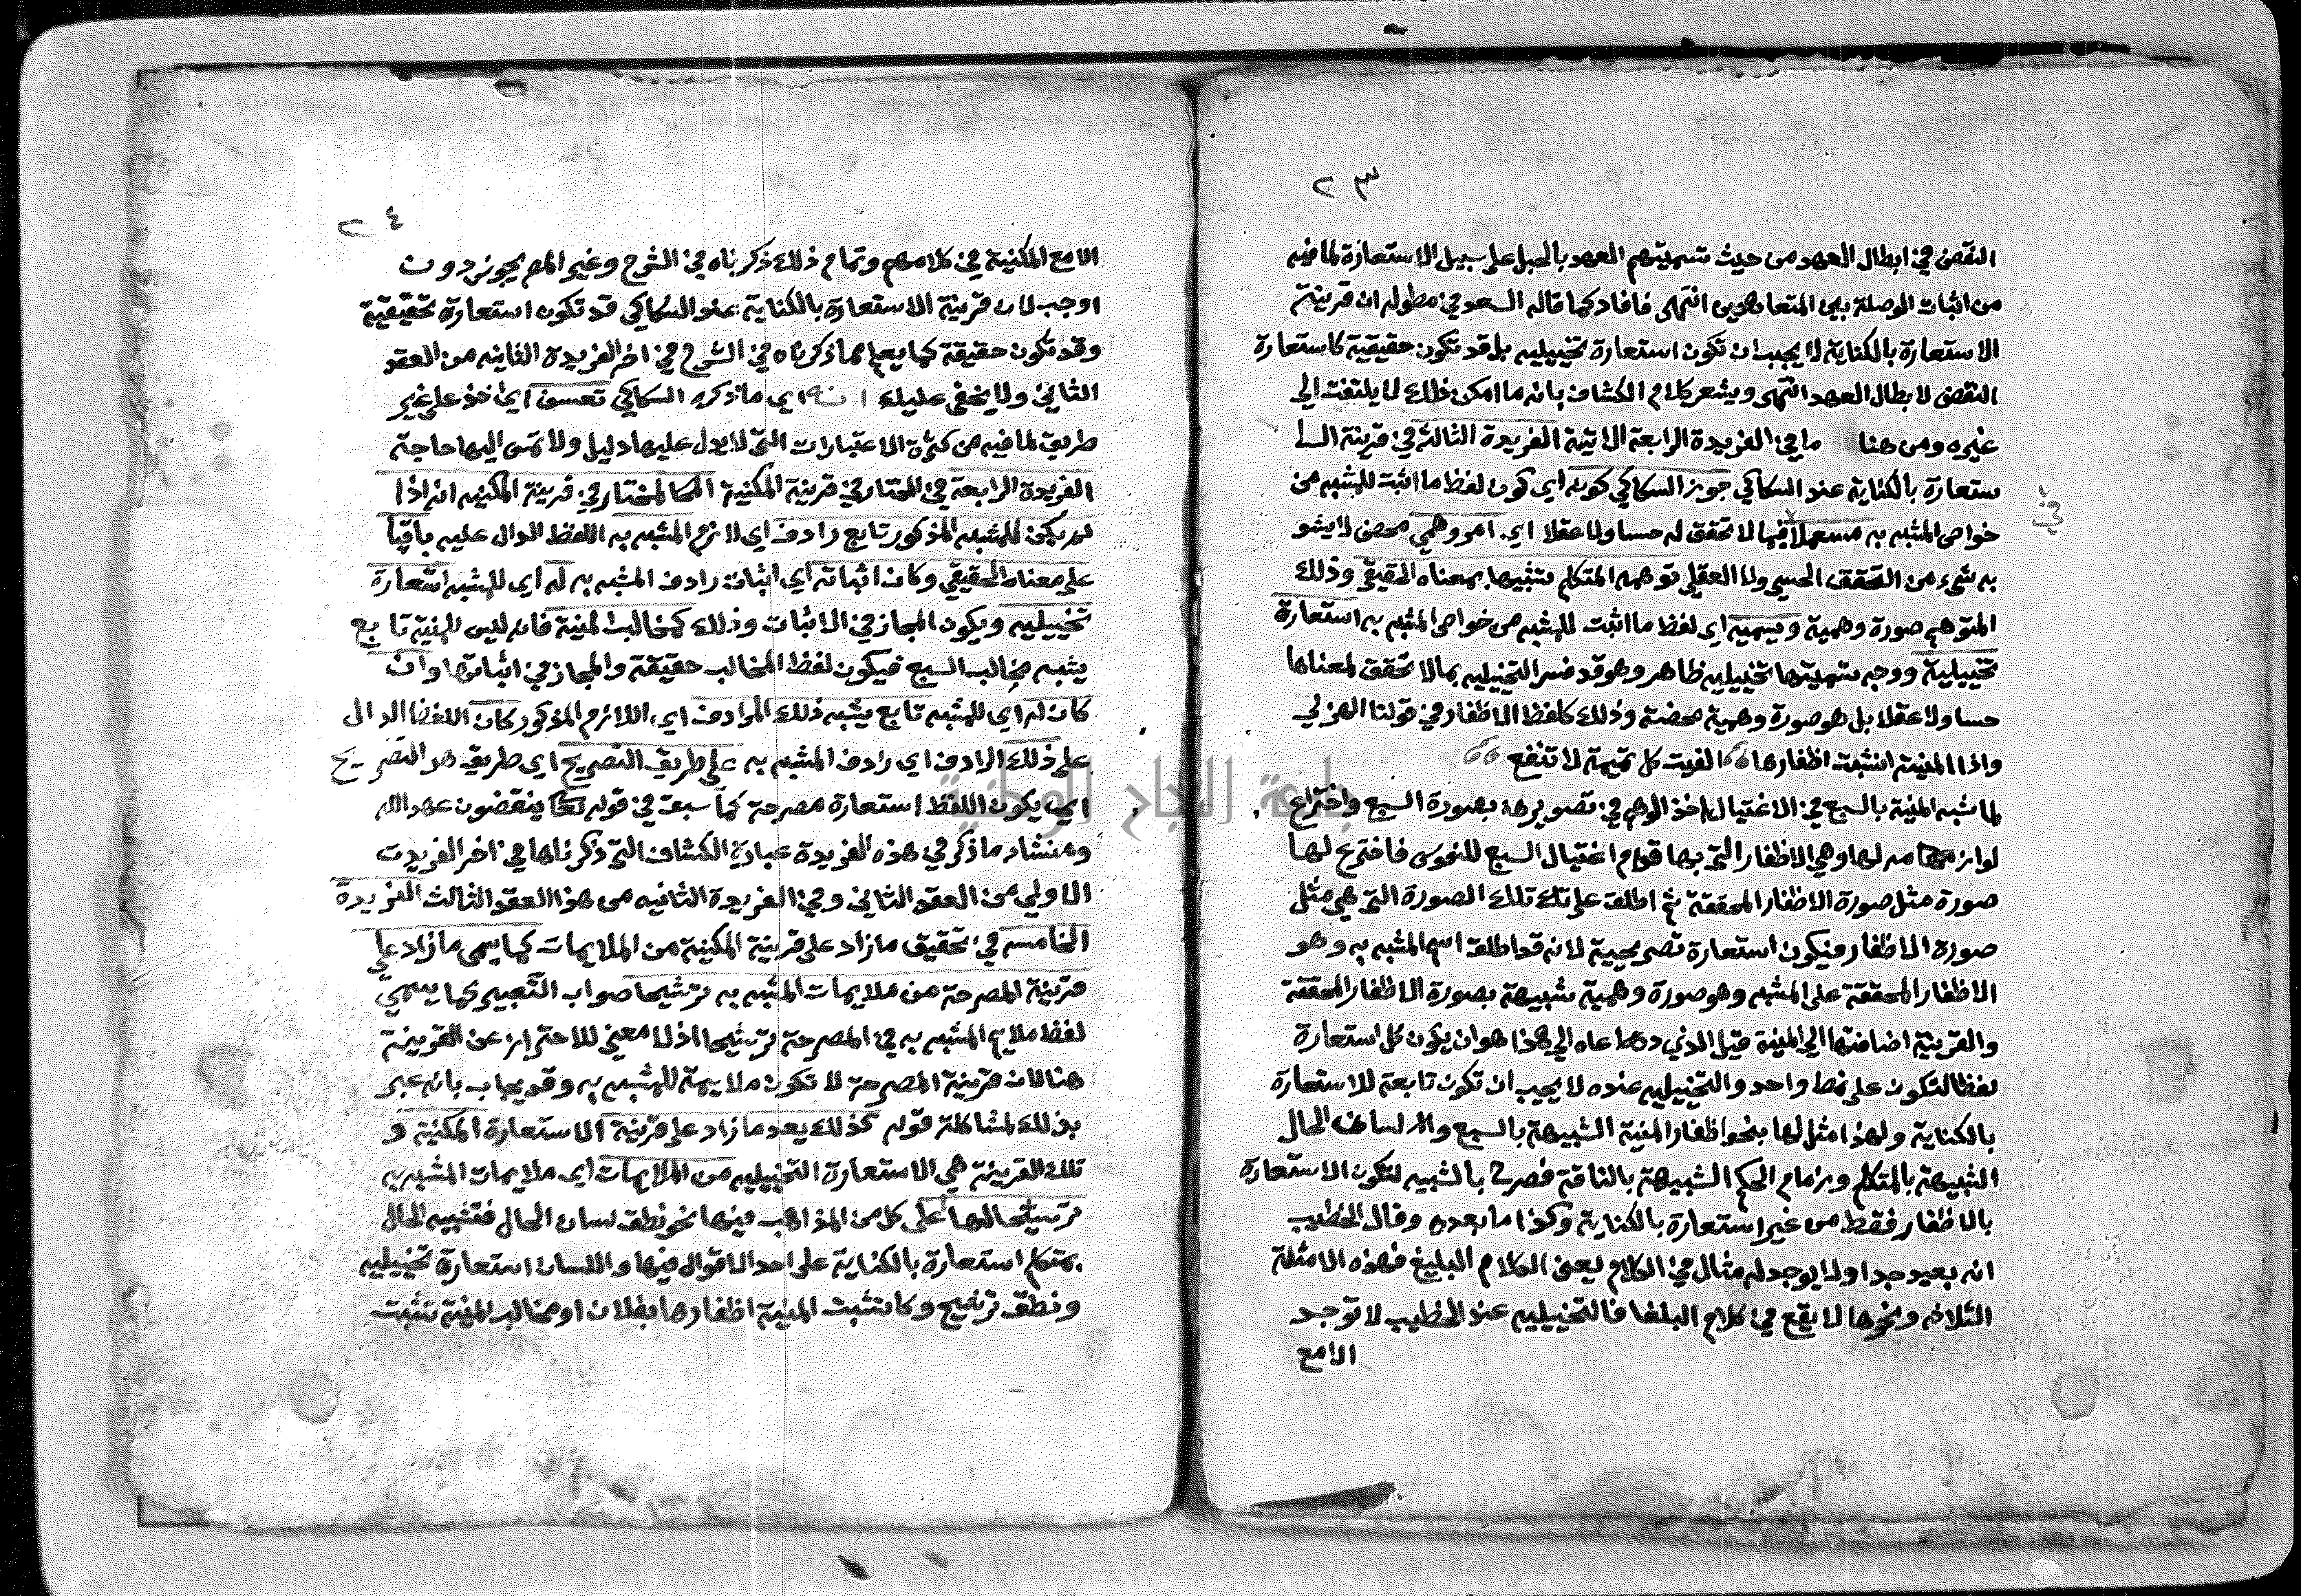 ٢٣
النقض في ابطال العهد من حيث تسميتهم العهد بالحبل على سبيل الاستعارة لما فيه
من اثبات الوصلة بين المتعاهدين انتهى فافاد كما قاله السعد في مطوله ان قرينة
الاستعارة بالكناية لا يجب ان تكون استعارة تخييليه بل قد تكون حقيقية كاستعارة
النقض لابطال العهد انتهى ويشعر كلام الكشاف بانه ما امكن ذلك لا يلتفت الى
غيره ومن هنا ما في الفريدة الرابعة الاتية الفريدة الثالثة في قرينة الا
ستعارة بالكناية عند السكاكي جوز السكاكي كونه اي كون لفظ ما اثبت للمشبه من
خواص المشبه به مستعملا فيما لا تحقق له حسا ولا عقلا اي امر وهمي محض لا يشو
في
به شيء من التحقق الحسي ولا العقلي توهمه المتكلم تشبيها بمعناه الحقيقي وذلك
المتوهم صورة وهمية ويسميه اي لفظ ما اثبت للمشبه من خواص المشبه به استعارة
تخييلية ووجه تسميتها تخييليه ظاهر وهو قد فسر التخييليه بما لا تحقق لمعناها
حسا ولا عقلا بل هو صورة وهمية محضة وذلك كلفظ الاظفار في قولنا الهزلي
واذا المنية انشبت اظفارها الفيت كل تميمة لا تنفع
لما شبه المنية بالسبع في الاغتيال اخذ الوهم في تصويرها بصورة السبع واختراع
لوازمه لها وهي الاظفار التي بها قوام اغتيال السبع للنفوس فاخترع لها
صورة مثل صورة الاظفار المحققة ثم اطلق على تلك الصورة التي هي مثل
صورة الاظفار فيكون استعارة تصريحية لانه قد اطلق اسم المشبه به وهو
الاظفار المحققة على المشبه وهو صورة وهمية شبيهة بصورة الاظفار المحققة
والقرينة اضافتها الى المنية قيل الذي دعاه الى هذا هو ان يكون كل استعارة
لفظا لتكون على نمط واحد والتخييليه عنده لا يجب ان تكون تابعة للاستعارة
بالكناية ولهذا مثل لها بنحو اظفار المنية الشبيهة بالسبع ولسان الحال
الشبيهة بالمتكلم وزمام الحكم الشبيهة بالناقة فصرح بالشبيه لتكون الاستعارة
بالاظفار فقط من غير استعارة بالكناية وكذا ما بعده وقال الخطيب
انه بعيد جدا ولا يوجد له مثال في الكلام يعني الكلام البليغ فهذه الامثلة
الثلاثه ونحوها لا يقع في كلام البلغا فالتخييليه عند الخطيب لا توجد
الامع
٢٤
الامع المكنية في كلامهم وتمام ذلك ذكرناه في الشرح وغير المص بجوز دون
اوجب لان قرينة الاستعارة بالكناية عند السكاكي قد تكون استعارة تحقيقية
وقد تكون حقيقة كما يعلم مما ذكرناه في الشرح في اخر الفريدة الثانيه من العقد
الثاني ولا يخفى عليك انه اي ما ذكره السكاكي تعسف اي اخذ على غير
طريق لما فيه من كثرة الاعتبارات التي لا يدل عليها دليل ولا تمس اليها حاجة
الفريدة الرابعة في المختار في قرينة المكنية المختار في قرينة المكنيه انه اذا
لم يكن للمشبه المذكور تابع رادف اي لازم المشبه به اللفظ الدال عليه باقيا
على معناه الحقيقي وكان اثباته اي اثبات رادف المشبه به له اي للمشبه استعارة
تخييليه ويكون المجاز في الاثبات وذلك كمخالب المنية فانه ليس للمنية تابع
يشبه مخالب السبع فيكون لفظ المخالب حقيقة والمجاز في اثباتها وان
كان له اي للمشبه تابع يشبه ذلك الرادف اي اللازم المذكور كان اللفظ الدال
على ذلك الرادف اي رادف المشبه به على طريق التصريح اي طريق هو التصريح
اي يكون اللفظ استعارة مصرحة كما سبق في قوله تعالى ينقضون عهد الله
ومنشاء ما ذكر في هذه الفريدة عبارة الكشاف التي ذكرناها في اخر الفريدت
الاولى من العقد الثاني وفي الفريدة الثانيه من هذا العقد الثالث الفريدة
الخامسه في تحقيق ما زاد على قرينة المكنية من الملايمات كما يسمى ما زاد على
قرينة المصرحة من ملايمات المشبه به ترشيحا صواب التعبير كما يسمي
لفظ ملايم المشبه به في المصرحة ترشيحا اذ لا معنى للاحتراز عن القرينة
هنا لان قرينة المصرحة لا تكون ملايمة للمشبه به وقد يجاب بانه عبر
بذلك لمشاكلة قوله كذلك يعد ما زاد على قرينة الاستعارة المكنية و
تلك القرينة هي الاستعارة التخييليه من الملايمات اي ملايمات المشبه به
ترشيحا لها على كل من المذاهب فيها نحو نطق لسان الحال فتشبيه الحال
بمتكلم استعارة بالكناية على احد الاقوال فيها واللسان استعارة تخييليه
ونطق ترشيح وكانشبت المنية اظفارها بفلان او مخالب المنية تشبت